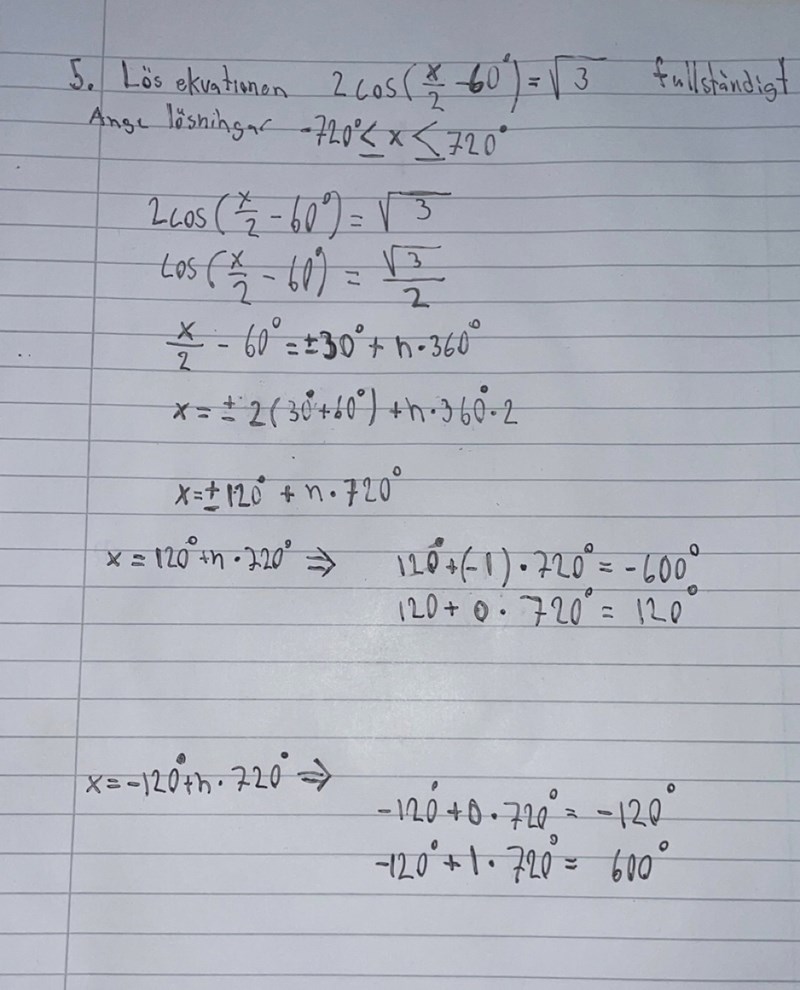 5. Lös ekvationen 2cos(x/2 - 60°) = √3 fullständigt
Ange lösningar -720° ≤ x ≤ 720°
2cos(x/2 - 60°) = √3
cos(x/2 - 60°) = √3/2
x/2 - 60° = ±30° + n·360°
x = ± 2(30°+60°) + n·360°·2
x = ±120° + n·720°
x = 120° + n·720° ⇒ 120° + (-1)·720° = -600°
120 + 0·720° = 120°
x = -120° + n·720° ⇒
-120° + 0·720° = -120°
-120° + 1·720° = 600°